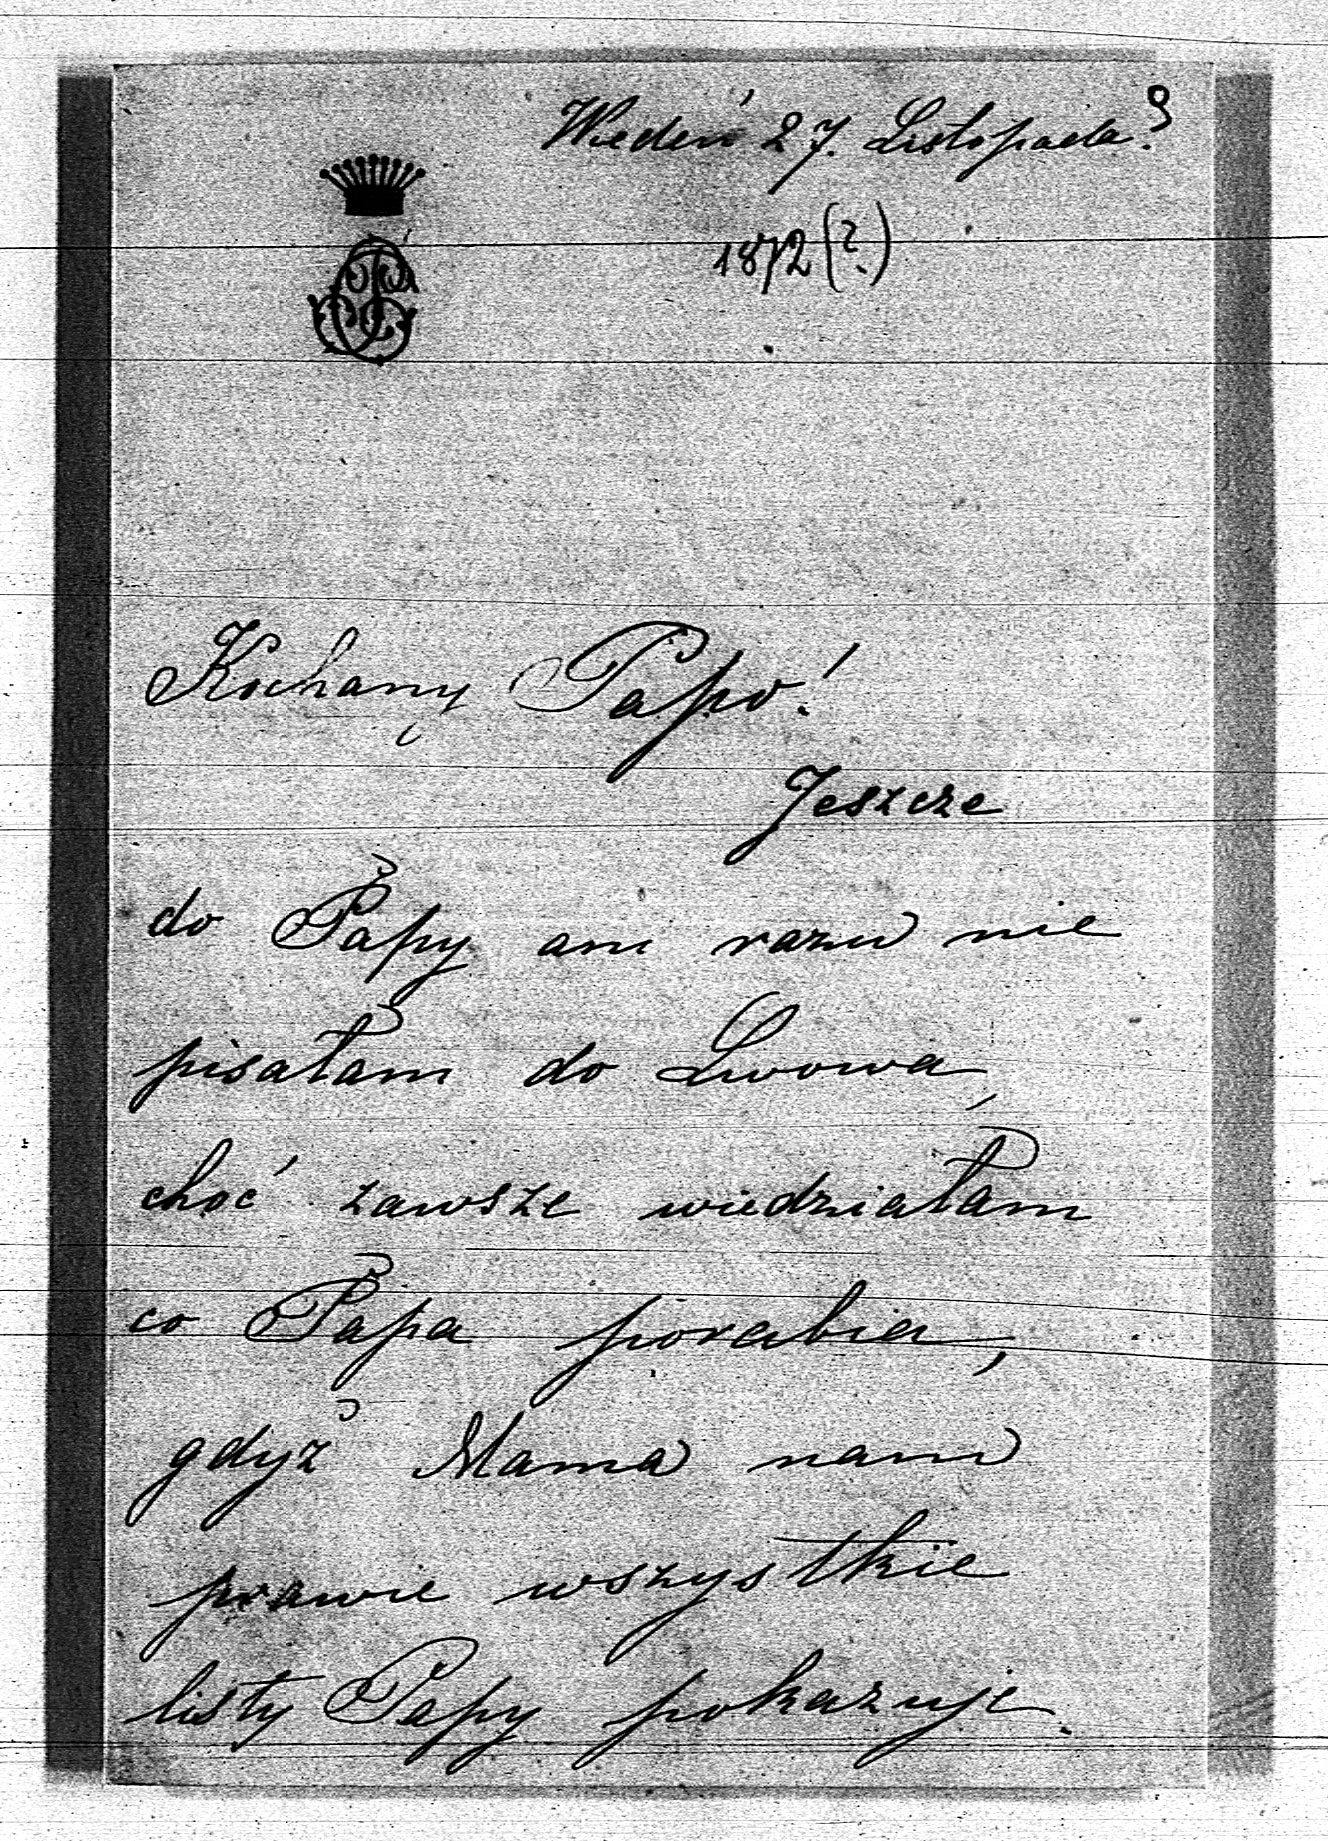 Wiedeń 27. Listopada?
1872 (?)
Kochany Papo!
Jeszcze
do Papy ani razu nie
pisałam do Lwowa,
choć zawsze wiedziałam
co Papa porabia,
gdyż Mama nam
prawie wszystkie
listy Papy pokazuje.